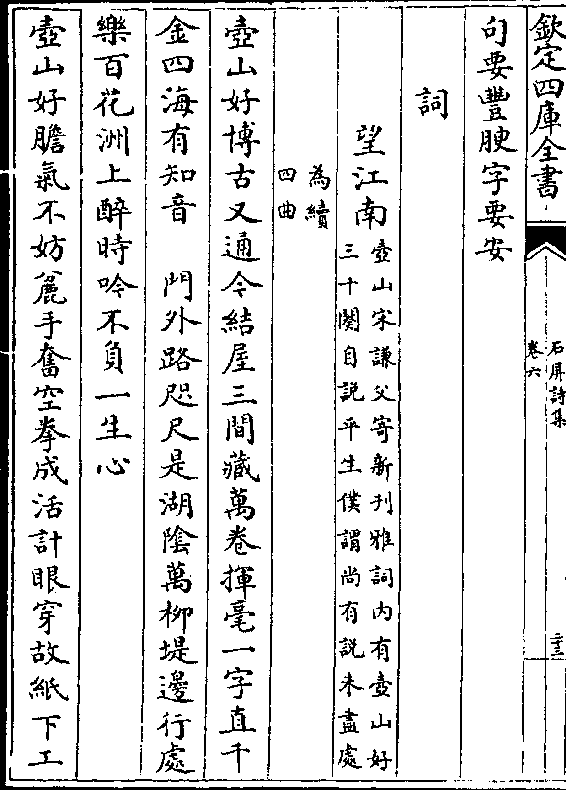 欽定四庫全書
石屏詩集
卷六
二十三
句要豐腴字要安
詞
望江南
壺山宋謙父寄新刋雅詞内有壺山好
三十闋自説平生僕謂尚有説未盡處
為續
四曲
壺山好博古又通今結屋三間藏萬卷揮毫一字直千
金四海有知音　門外路咫尺是湖隂萬柳堤邊行處
樂百花洲上醉時吟不負一生心
壺山好膽氣不妨麄手奮空拳成活計眼穿故紙下工